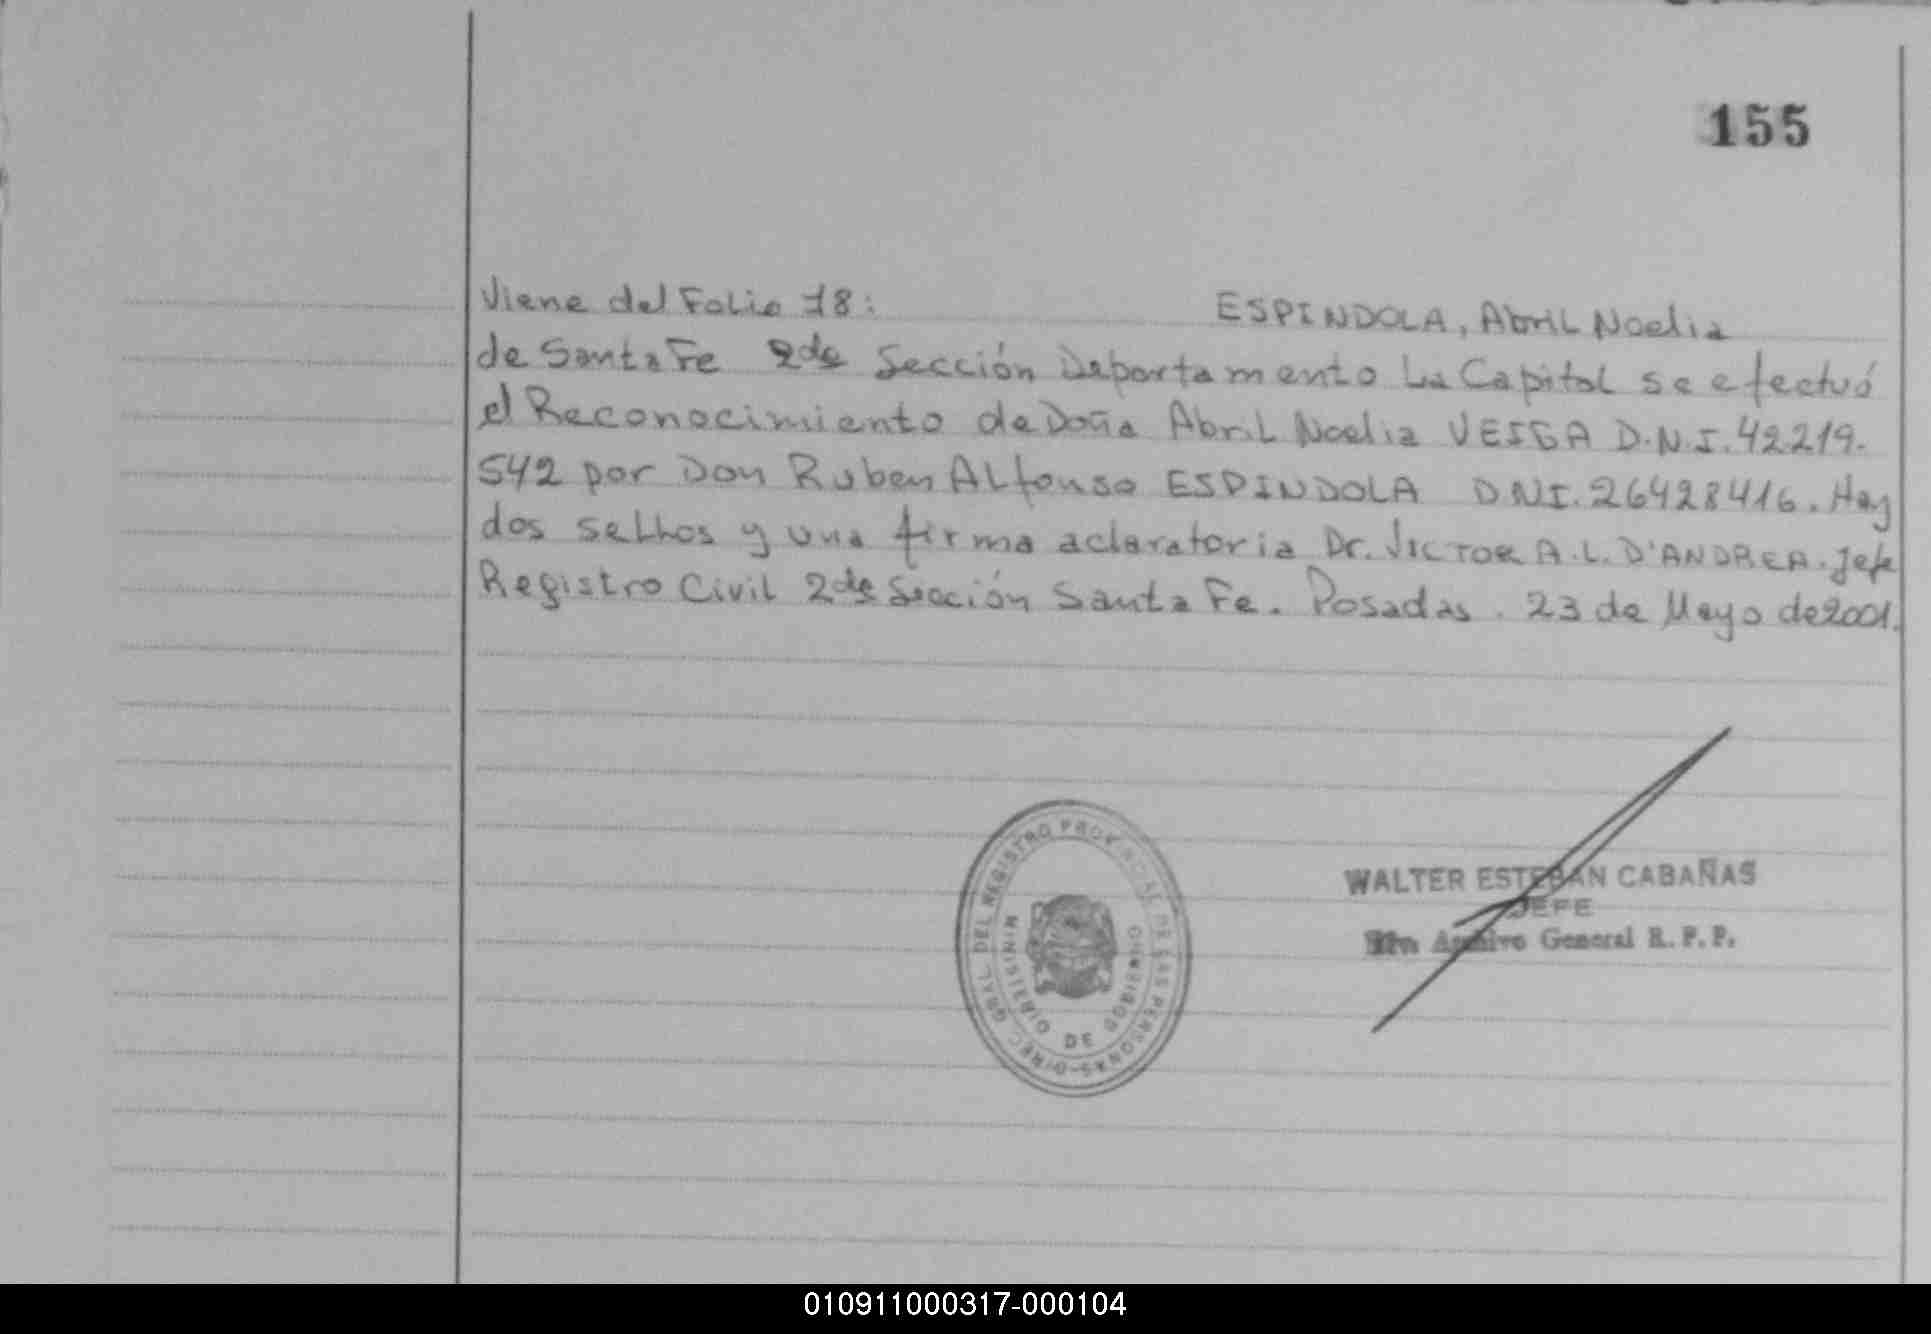 155
Viene del Folio 78: ESPINDOLA, Abril Noelia
de Santa Fe 2da Sección Departamento La Capital se efectuó
el Reconocimiento de Doña Abril Noelia VEIGA D.N.I. 42219.
542 por Don Ruben Alfonso ESPINDOLA DNI. 26428416. Hay
dos sellos y una firma aclaratoria Dr. VICTOR A.L. D'ANDREA. Jefe
Registro Civil 2da Sección Santa Fe. Posadas. 23 de Mayo de 2001.
DIREC. GRAL. DEL REGISTRO PROVINCIAL DE LAS PERSONAS
MINISTERIO DE GOBIERNO
WALTER ESTEBAN CABAÑAS
JEFE
Archivo General R. P. P.
010911000317-000104